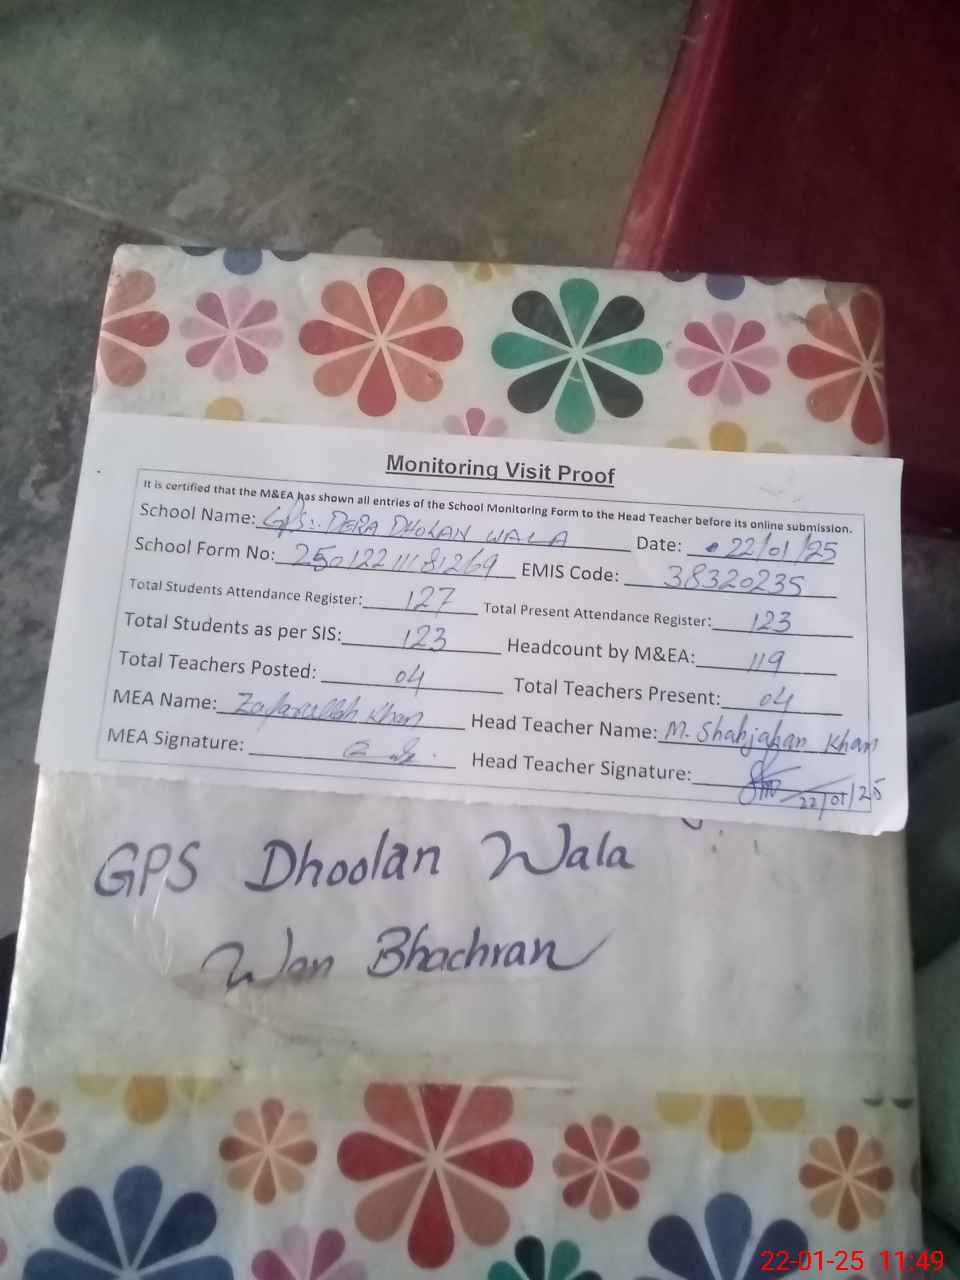 Monitoring Visit Proof
It is certified that the M&EA has shown all entries of the School Monitoring Form to the Head Teacher before its online submission.
School Name: GPS:. DERA DHOLAN WALA Date: 22/01/25
School Form No: EMIS Code: 38320235
Total Students Attendance Register: 127 Total Present Attendance Register: 123
Total Students as per SIS: 123 Headcount by M&EA: 119
Total Teachers Posted: 04 Total Teachers Present: 04
MEA Name: Zafarullah Khan Head Teacher Name: M. Shahjahan Khan
MEA Signature: Head Teacher Signature:
22/01/25
GPS Dhoolan Wala
Wan Bhachran
22-01-25 11:49